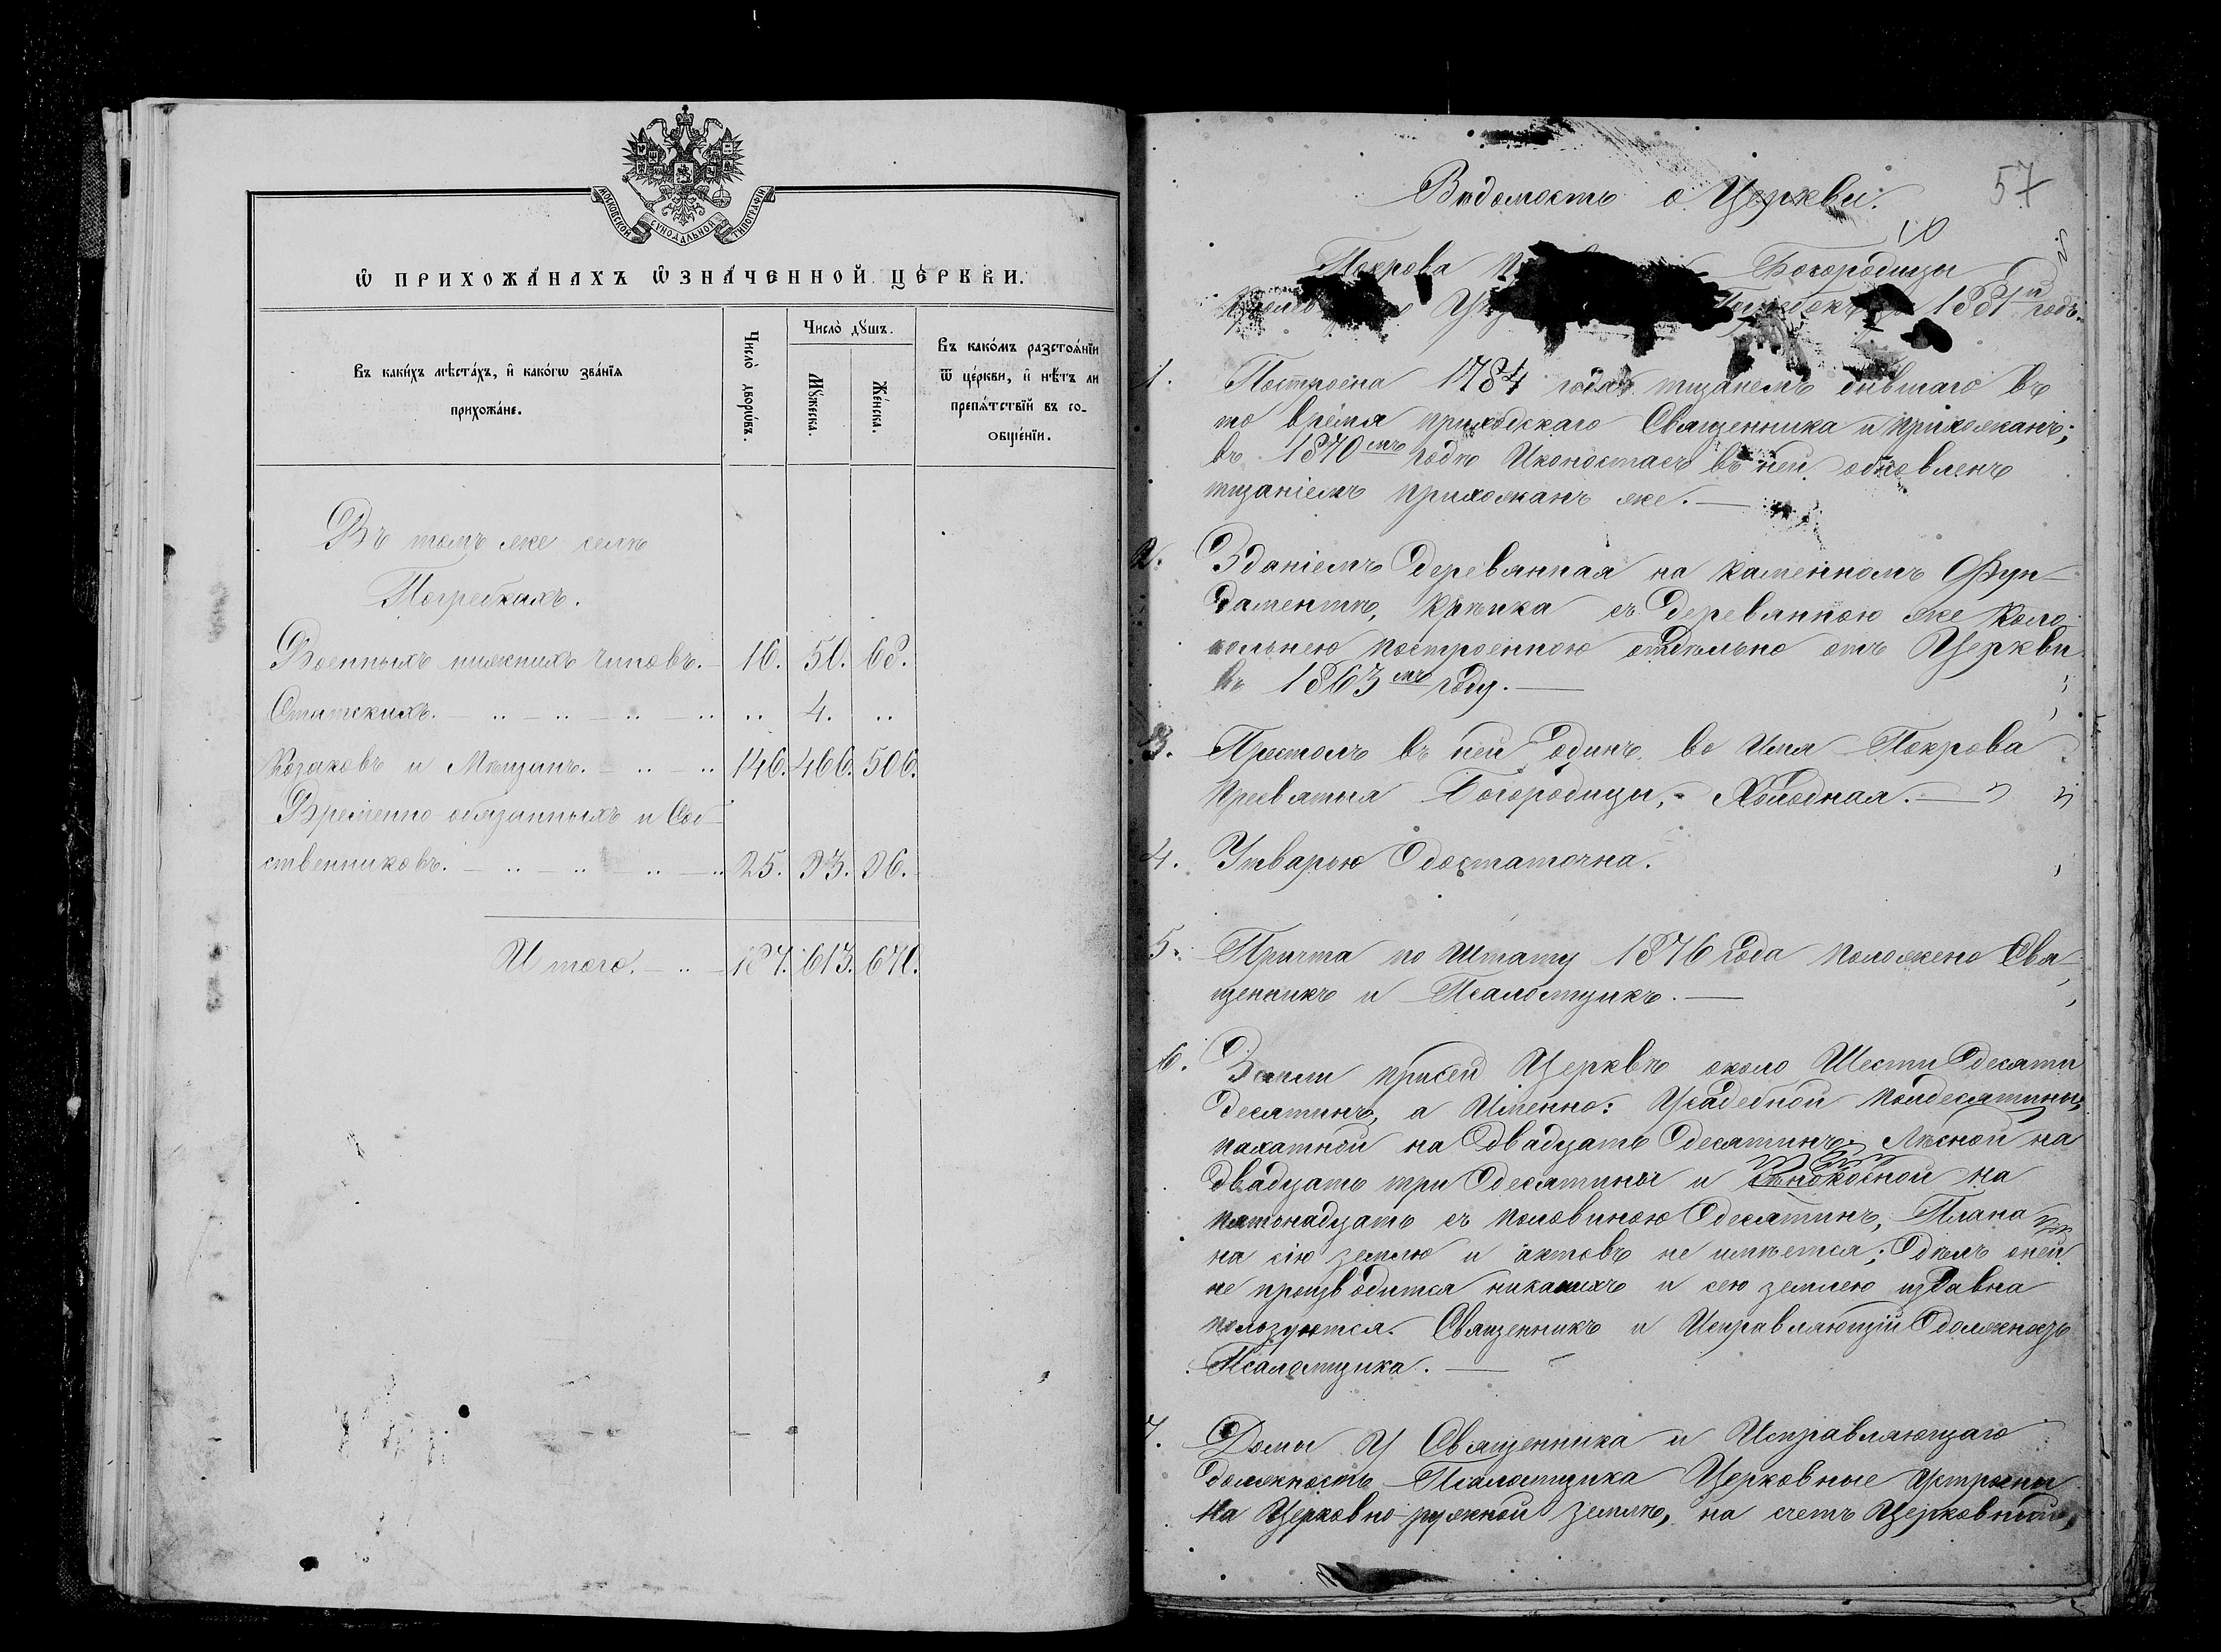 МОСКОВСКОЙ СѴНОДАЛЬНОЙ ТИПОГРАФІИ
Ѡ ПРИХОЖА́НАХЪ Ѡ҆ЗНА́ЧЕННОЙ ЦЕ́РКВИ.
Въ каки́хъ мѣста́хъ, и҆ како́гѡ зва́нїѧ
прихожа́не.
Число̀ дворѡ́въ.
Число̀ дꙋшъ.
Мꙋ́жеска.
Же́нска.
Въ како́мъ разстоѧ́нїи
ѿ це́ркви, и҆ нѣ́тъ ли
препѧ́тствїй въ со-
ѻбще́нїи.
Въ томъ же селѣ
Погребкахъ.
Военныхъ нижнихъ чиновъ. 16. 50. 68.
Статскихъ. 4.
Козаковъ и Мѣщанъ. 146. 466. 506.
Временно обязанныхъ и Соб-
ственниковъ. 25. 93. 96.
Итого. 187. 613. 670.
57
Вѣдомость о Церкви.
Покрова Богородицы
1881й годъ.
1. Построена 1784 года тщаніемъ бывшаго въ
то время приходскаго Священника и прихожанъ;
въ 1870мъ годѣ Иконостасъ въ ней обновленъ
тщаніемъ прихожанъ же.
2. Зданіемъ деревянная на каменномъ Фун-
даментѣ, крѣпка съ деревянною же коло-
кольнею построенною отдѣльно отъ Церкви
въ 1863мъ году.
3. Престолъ въ ней одинъ во имя Покрова
Пресвятыя Богородицы, Холодная.
4. Утварью достаточна.
5. Причта по Штату 1876 года положено Свя-
щенникъ и Псаломщикъ.
6. Земли при сей Церквѣ около Шести десяти
десятинъ, а Именно: Усадебной полдесятины,
пахатной на двадцать десятинъ, Лѣсной на
двадцать три десятины и сѣнокосной на
пятьнадцать съ половиною десятинъ, Плана
на сію землю и актовъ не имѣется; дѣлъ о ней
не производится никакихъ и сею землею издавна
пользуются Священникъ и Исправляющій должность
Псаломщика.
7. Домы у Священника и Исправляющаго
должность Псаломщика Церковные устроены
на Церковно-ружной землѣ, на счетъ Церковный,